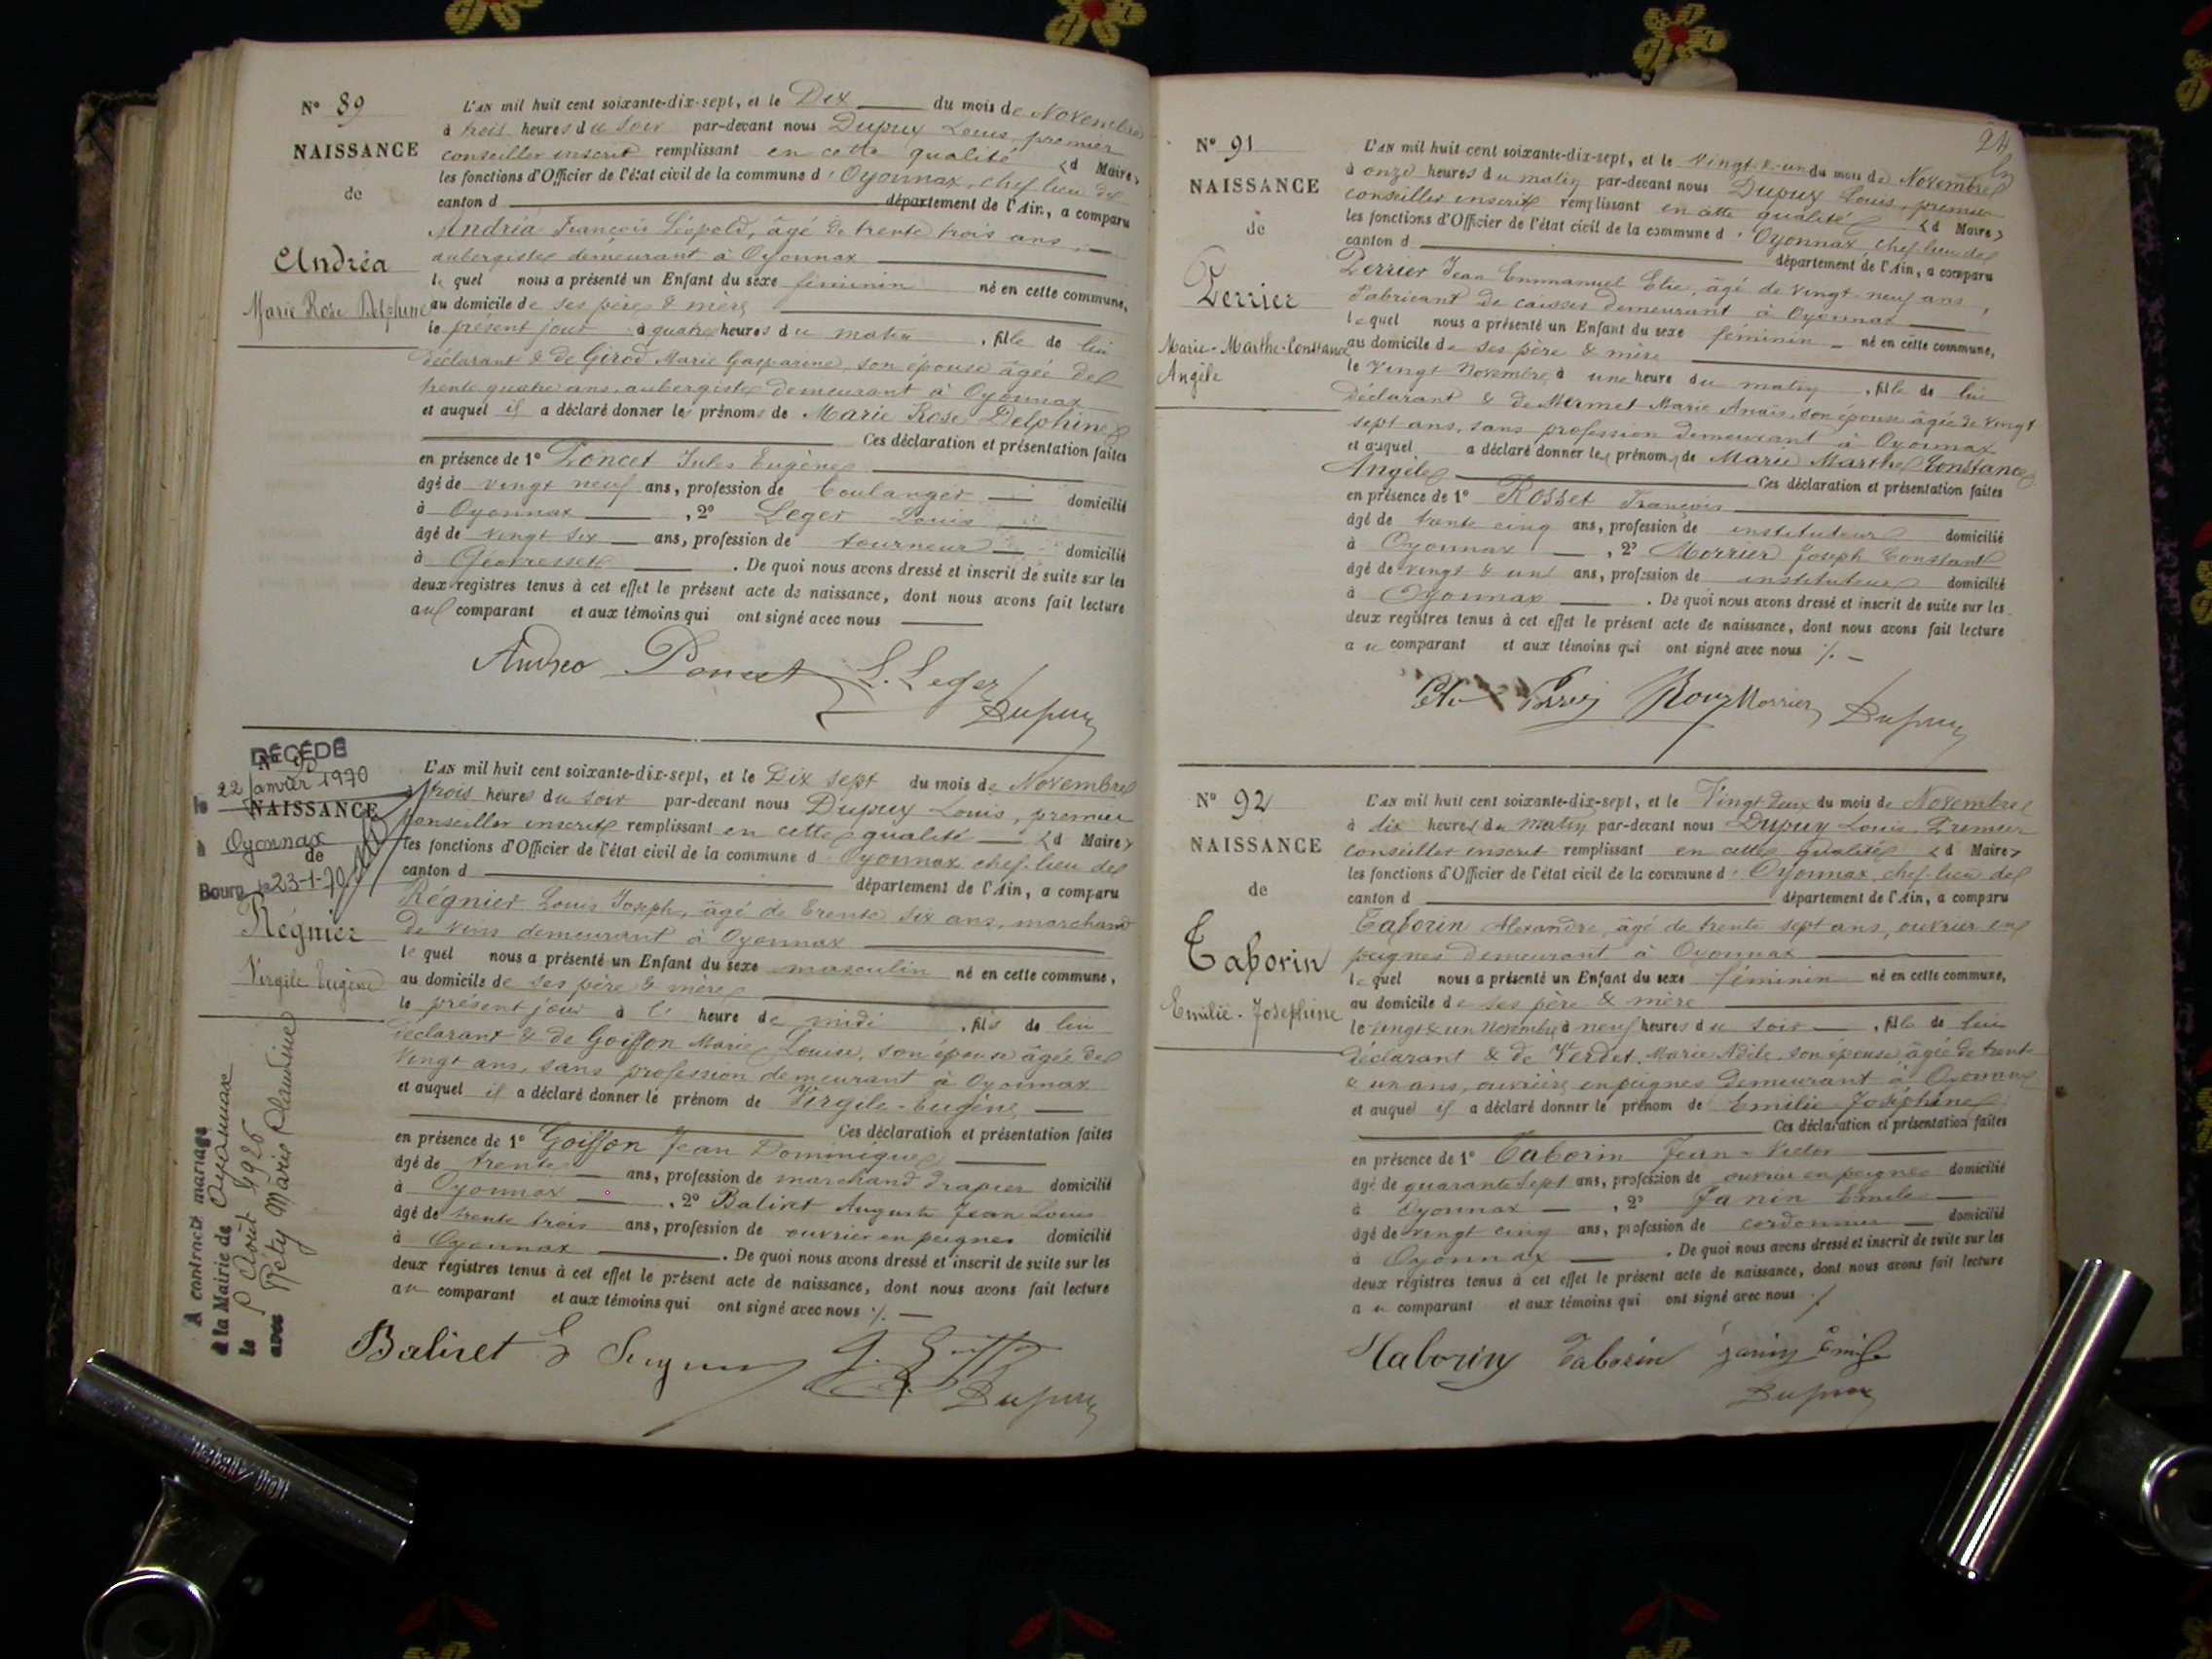 N° 89
NAISSANCE
de
Andréa
Marie Rose Delphine
L'AN mil huit cent soixante-dix-sept, et le Dix du mois de Novembre
à trois heures du soir par-devant nous Dupuy Louis, premier
conseiller inscrit remplissant en cette qualité <d Maire>
les fonctions d'Officier de l'état civil de la commune d'Oyonnax, chef lieu de
canton d département de l'Ain, a comparu
Andréa François Léopold, âgé de trente trois ans,
aubergiste demeurant à Oyonnax
le quel nous a présenté un Enfant du sexe féminin né en cette commune,
au domicile de ses père & mère
le présent jour à quatre heures du matin, fille de lui
déclarant & de Girod Marie Gasparine, son épouse âgée de
trente quatre ans, aubergiste demeurant à Oyonnax
et auquel il a déclaré donner les prénoms de Marie Rose Delphine
Ces déclaration et présentation faites
en présence de 1° Poncet Jules Eugène
âgé de vingt neuf ans, profession de boulanger domicilié
à Oyonnax, 2° Leger Louis
âgé de vingt six ans, profession de tourneur domicilié
à Géovresset. De quoi nous avons dressé et inscrit de suite sur les
deux registres tenus à cet effet le présent acte de naissance, dont nous avons fait lecture
au comparant et aux témoins qui ont signé avec nous
Andréa Poncet L. Leger
Dupuy
DÉCÉDÉ
N° 90
le 22 Janvier 1970
NAISSANCE
à Oyonnax
de
Bourg le 23-1-70
Régnier
Virgile Eugène
A contracté mariage
à la Mairie de Oyonnax
le Août 1925
avec Réty Marie Claudine
L'AN mil huit cent soixante-dix-sept, et le Dix sept du mois de Novembre
à trois heures du soir par-devant nous Dupuy Louis, premier
conseiller inscrit remplissant en cette qualité <d Maire>
les fonctions d'Officier de l'état civil de la commune d'Oyonnax chef lieu de
canton d département de l'Ain, a comparu
Régnier Louis Joseph, âgé de trente six ans, marchand
de vins demeurant à Oyonnax
le quel nous a présenté un Enfant du sexe masculin né en cette commune,
au domicile de ses père & mère
le présent jour à l' heure de midi, fils de lui
déclarant & de Goiffon Marie Louise, son épouse âgée de
vingt ans, sans profession demeurant à Oyonnax
et auquel il a déclaré donner le prénom de Virgile-Eugène
Ces déclaration et présentation faites
en présence de 1° Goiffon Jean Dominique
âgé de trente ans, profession de marchand drapier domicilié
à Oyonnax, 2° Balivet Auguste Jean Louis
âgé de trente trois ans, profession de ouvrier en peignes domicilié
à Oyonnax. De quoi nous avons dressé et inscrit de suite sur les
deux registres tenus à cet effet le présent acte de naissance, dont nous avons fait lecture
au comparant et aux témoins qui ont signé avec nous ./.
Balivet
Dupuy
24
N° 91
NAISSANCE
de
Perrier
Marie-Marthe-Constance
Angèle
L'AN mil huit cent soixante-dix-sept, et le vingt & un du mois de Novembre
à onze heures du matin par-devant nous Dupuy Louis, premier
conseiller inscrit remplissant en cette qualité <d Maire>
les fonctions d'Officier de l'état civil de la commune d'Oyonnax chef lieu de
canton d département de l'Ain, a comparu
Perrier Jean Emmanuel Elie, âgé de vingt-neuf ans,
fabricant de caisses demeurant à Oyonnax
le quel nous a présenté un Enfant du sexe féminin né en cette commune,
au domicile de ses père & mère
le vingt Novembre à une heure du matin, fille de lui
déclarant & de Mermet Marie Anaïs, son épouse âgée de vingt
sept ans, sans profession demeurant à Oyonnax
et auquel a déclaré donner les prénoms de Marie Marthe Constance
Angèle Ces déclaration et présentation faites
en présence de 1° Rosset François
âgé de trente cinq ans, profession de instituteur domicilié
à Oyonnax, 2° Morrier Joseph Constant
âgé de vingt & un ans, profession de instituteur domicilié
à Oyonnax. De quoi nous avons dressé et inscrit de suite sur les
deux registres tenus à cet effet le présent acte de naissance, dont nous avons fait lecture
au comparant et aux témoins qui ont signé avec nous ./.
Morrier Dupuy
N° 92
NAISSANCE
de
Taborin
Emilie-Joséphine
L'AN mil huit cent soixante-dix-sept, et le Vingt deux du mois de Novembre
à dix heures du matin par-devant nous Dupuy Louis, Premier
conseiller inscrit remplissant en cette qualité <d Maire>
les fonctions d'Officier de l'état civil de la commune d'Oyonnax, chef-lieu de
canton d département de l'Ain, a comparu
Taborin Alexandre, âgé de trente sept ans, ouvrier en
peignes demeurant à Oyonnax
le quel nous a présenté un Enfant du sexe féminin né en cette commune,
au domicile de ses père & mère
le vingt & un Novembre à neuf heures du soir, fille de lui
déclarant & de Verdet, Marie Adèle, son épouse âgée de trente
& un ans, ouvrière en peignes demeurant à Oyonnax
et auquel il a déclaré donner le prénom de Emilie Joséphine
Ces déclaration et présentation faites
en présence de 1° Taborin Jean-Victor
âgé de quarante sept ans, profession de ouvrier en peignes domicilié
à Oyonnax, 2° Janin Emile
âgé de vingt cinq ans, profession de cordonnier domicilié
à Oyonnax. De quoi nous avons dressé et inscrit de suite sur les
deux registres tenus à cet effet le présent acte de naissance, dont nous avons fait lecture
au comparant et aux témoins qui ont signé avec nous ./.
Taborin Taborin Janin Emile
Dupuy